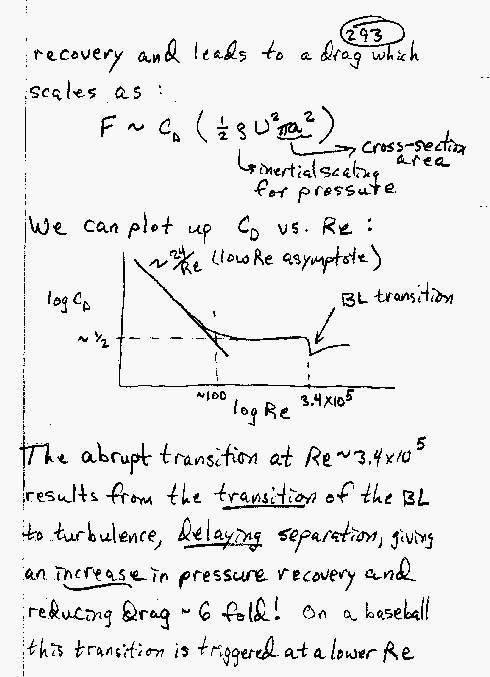 293
recovery and leads to a drag which
scales as :
F ~ C_D ( ½ ρ U² πa² )
cross-section
area
inertial scaling
for pressure
We can plot up C_D vs. Re :
~ 24/Re (low Re asymptote)
log C_D
BL transition
~ ½
~100
3.4×10⁵
log Re
The abrupt transition at Re ~ 3.4×10⁵
results from the transition of the BL
to turbulence, delaying separation, giving
an increase in pressure recovery and
reducing drag ~ 6 fold! On a baseball
this transition is triggered at a lower Re